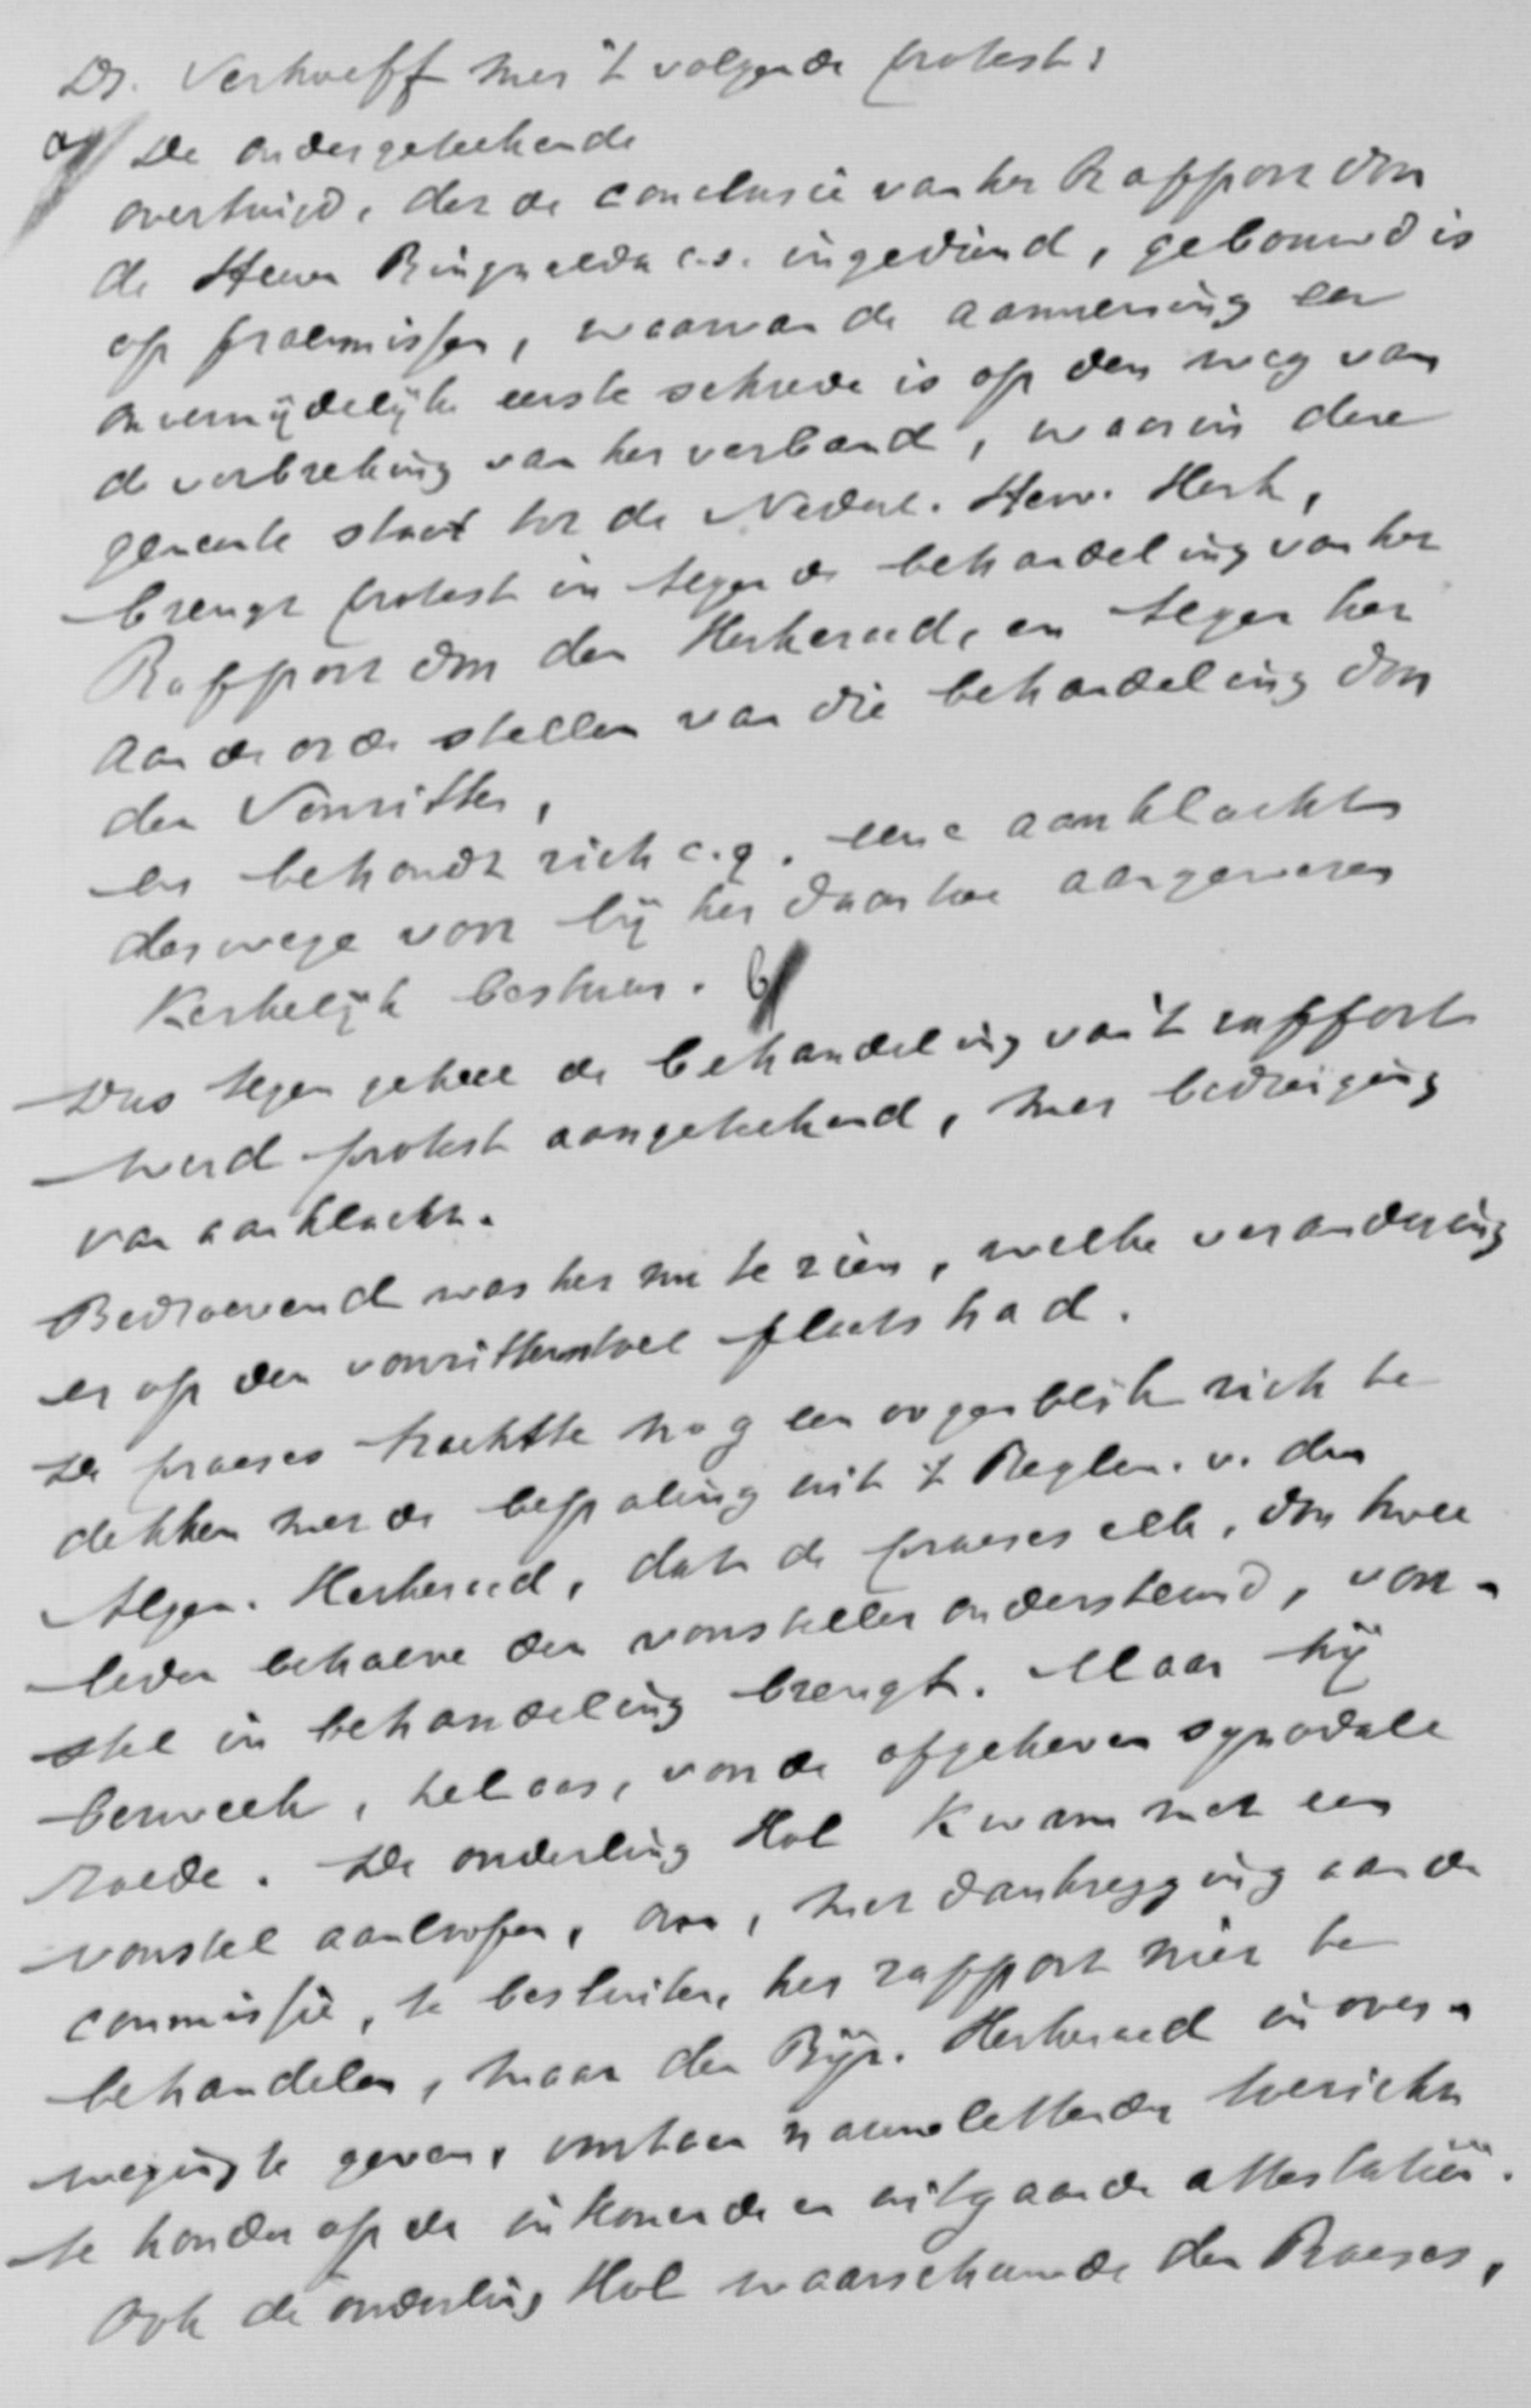 Ds. Verhoeff met 't volgende protest:
a/ De ondergeteekende
overtuigd, dat de conclusie van het Rapport door
de Heeren Ringnalda c.s. ingediend, gebouwd is
op praemissen, waarvan de aanneming een
onvermijdelijke eerste schrede is op den weg van
de verbreking van het verband, waarin deze
gemeente staat tot de Nederl. Herv. Kerk,
brengt protest in tegen de behandeling van het
Rapport door den Kerkeraad, en tegen het
aan de orde stellen van die behandeling door
den Voorzitter,
en behoudt zich c.q. eene aanklacht
deswege voor bij het daartoe aangewezen
Kerkelijk bestuur. b/
Dus tegen geheel de behandeling van 't rapport
werd protest aangeteekend, met bedreiging
van aanklacht.
Bedroevend was het nu te zien, welke verandering
er op den voorzittersstoel plaats had.
De praeses trachtte nog een oogenblik zich te
dekken met de bepaling uit 't Reglem. v. den
Algem. Kerkeraad, dat de praeses elk, door twee
leden behalve den voorsteller ondersteund, voor-
stel in behandeling brengt. Maar hij
bezweek, helaas, voor de opgeheven synodale
roede. De ouderling Hol kwam met een
voorstel aanloopen, om, met dankzegging aan de
commissie, te besluiten, het rapport niet te
behandelen, maar den Bijz. Kerkeraad in over-
weging te geven, voortaan nauwlettender toezicht
te houden op de inkomende en uitgaande attestatiën.
Ook de ouderling Hol waarschuwde den Praeses,